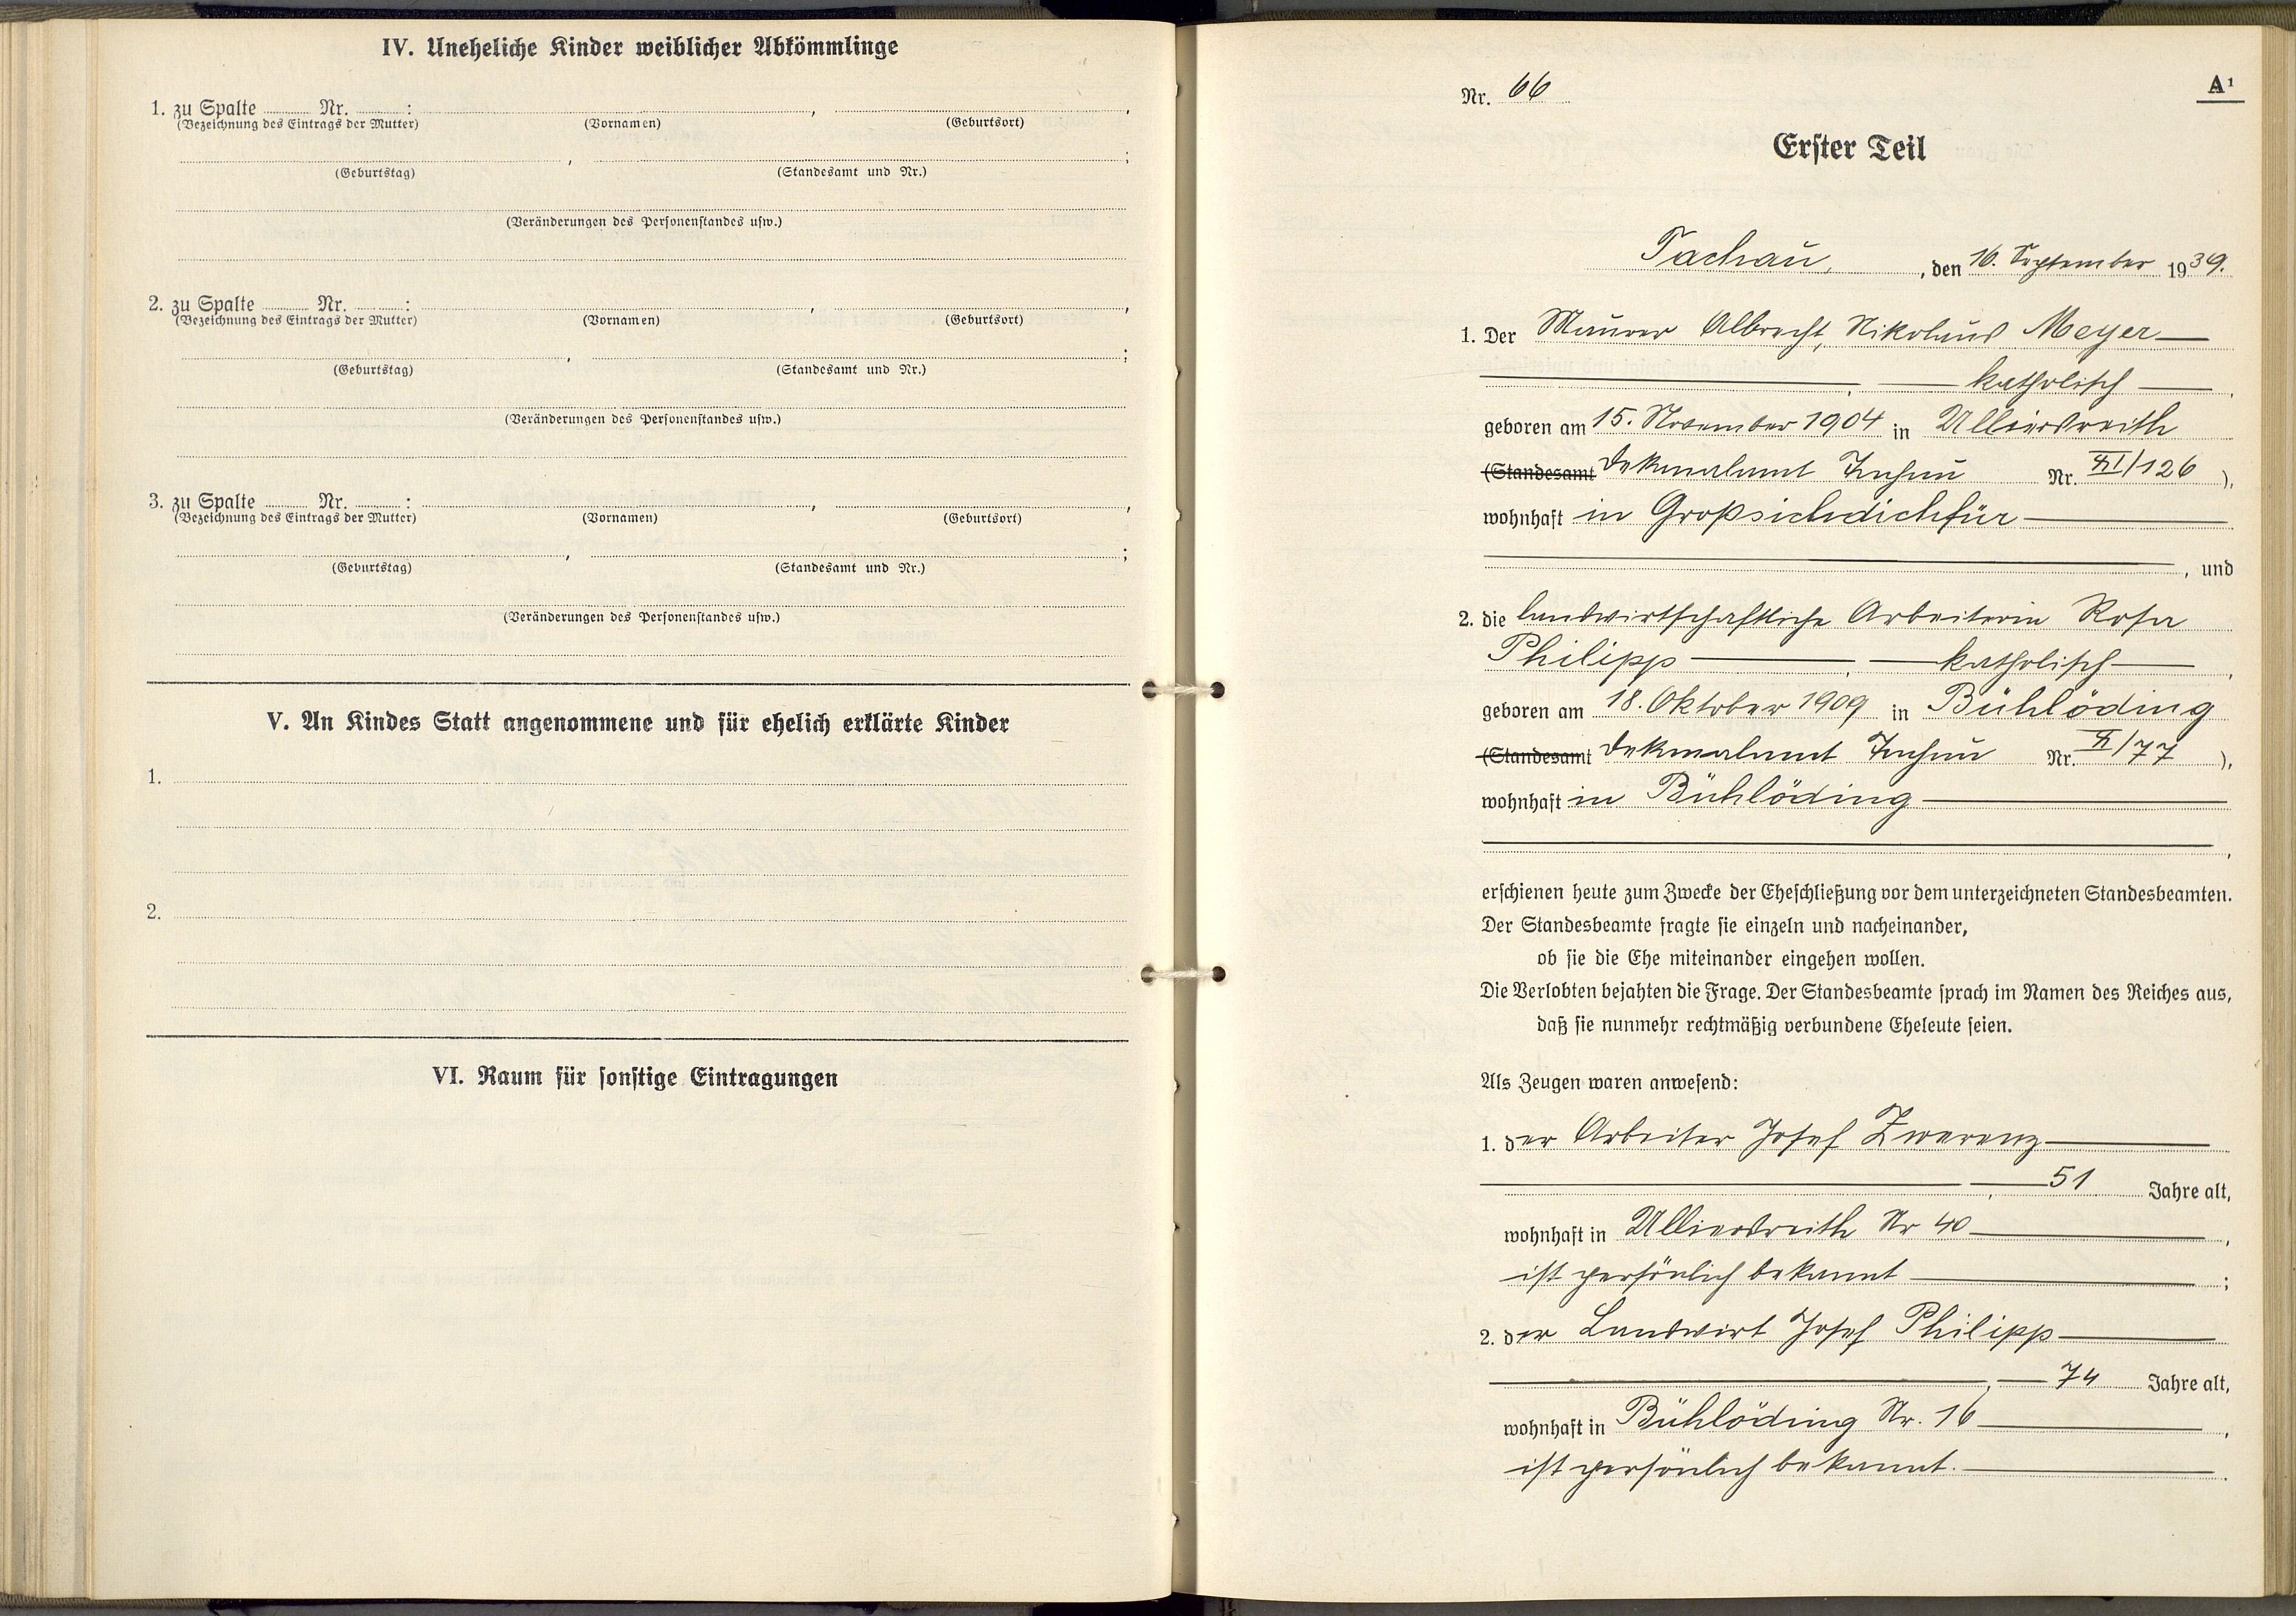 IV. Uneheliche Kinder weiblicher Abkömmlinge
1. zu Spalte ........ Nr. ........:  ,  ,
(Bezeichnung des Eintrags der Mutter) (Vornamen) (Geburtsort)
,  ;
(Geburtstag) (Standesamt und Nr.)
(Veränderungen des Personenstandes usw.)
2. zu Spalte ........ Nr. ........:  ,  ,
(Bezeichnung des Eintrags der Mutter) (Vornamen) (Geburtsort)
,  ;
(Geburtstag) (Standesamt und Nr.)
(Veränderungen des Personenstandes usw.)
3. zu Spalte ........ Nr. ........:  ,  ,
(Bezeichnung des Eintrags der Mutter) (Vornamen) (Geburtsort)
,  ;
(Geburtstag) (Standesamt und Nr.)
(Veränderungen des Personenstandes usw.)
V. An Kindes Statt angenommene und für ehelich erklärte Kinder
1.
2.
VI. Raum für sonstige Eintragungen
A¹
Nr. 66
Erster Teil
Tachau, , den 16. September 1939.
1. Der Maurer Albrecht, Nikolaus Meyer
, katholisch ,
geboren am 15. November 1904 in Ulliersreith
(Standesamt Dekanalamt Tachau Nr. XI/126 ),
wohnhaft in Großsichdichfür
, und
2. die landwirtschaftliche Arbeiterin Rosa
Philipp , katholisch ,
geboren am 18. Oktober 1909 in Bühlöding
(Standesamt Dekanalamt Tachau Nr. X/77 ),
wohnhaft in Bühlöding
,
erschienen heute zum Zwecke der Eheschließung vor dem unterzeichneten Standesbeamten.
Der Standesbeamte fragte sie einzeln und nacheinander,
ob sie die Ehe miteinander eingehen wollen.
Die Verlobten bejahten die Frage. Der Standesbeamte sprach im Namen des Reiches aus,
daß sie nunmehr rechtmäßig verbundene Eheleute seien.
Als Zeugen waren anwesend:
1. der Arbeiter Josef Zwerenz
, 51 Jahre alt,
wohnhaft in Ulliersreith Nr 40 ,
ist persönlich bekannt ;
2. der Landwirt Josef Philipp
, 74 Jahre alt,
wohnhaft in Bühlöding Nr. 16 ,
ist persönlich bekannt. .